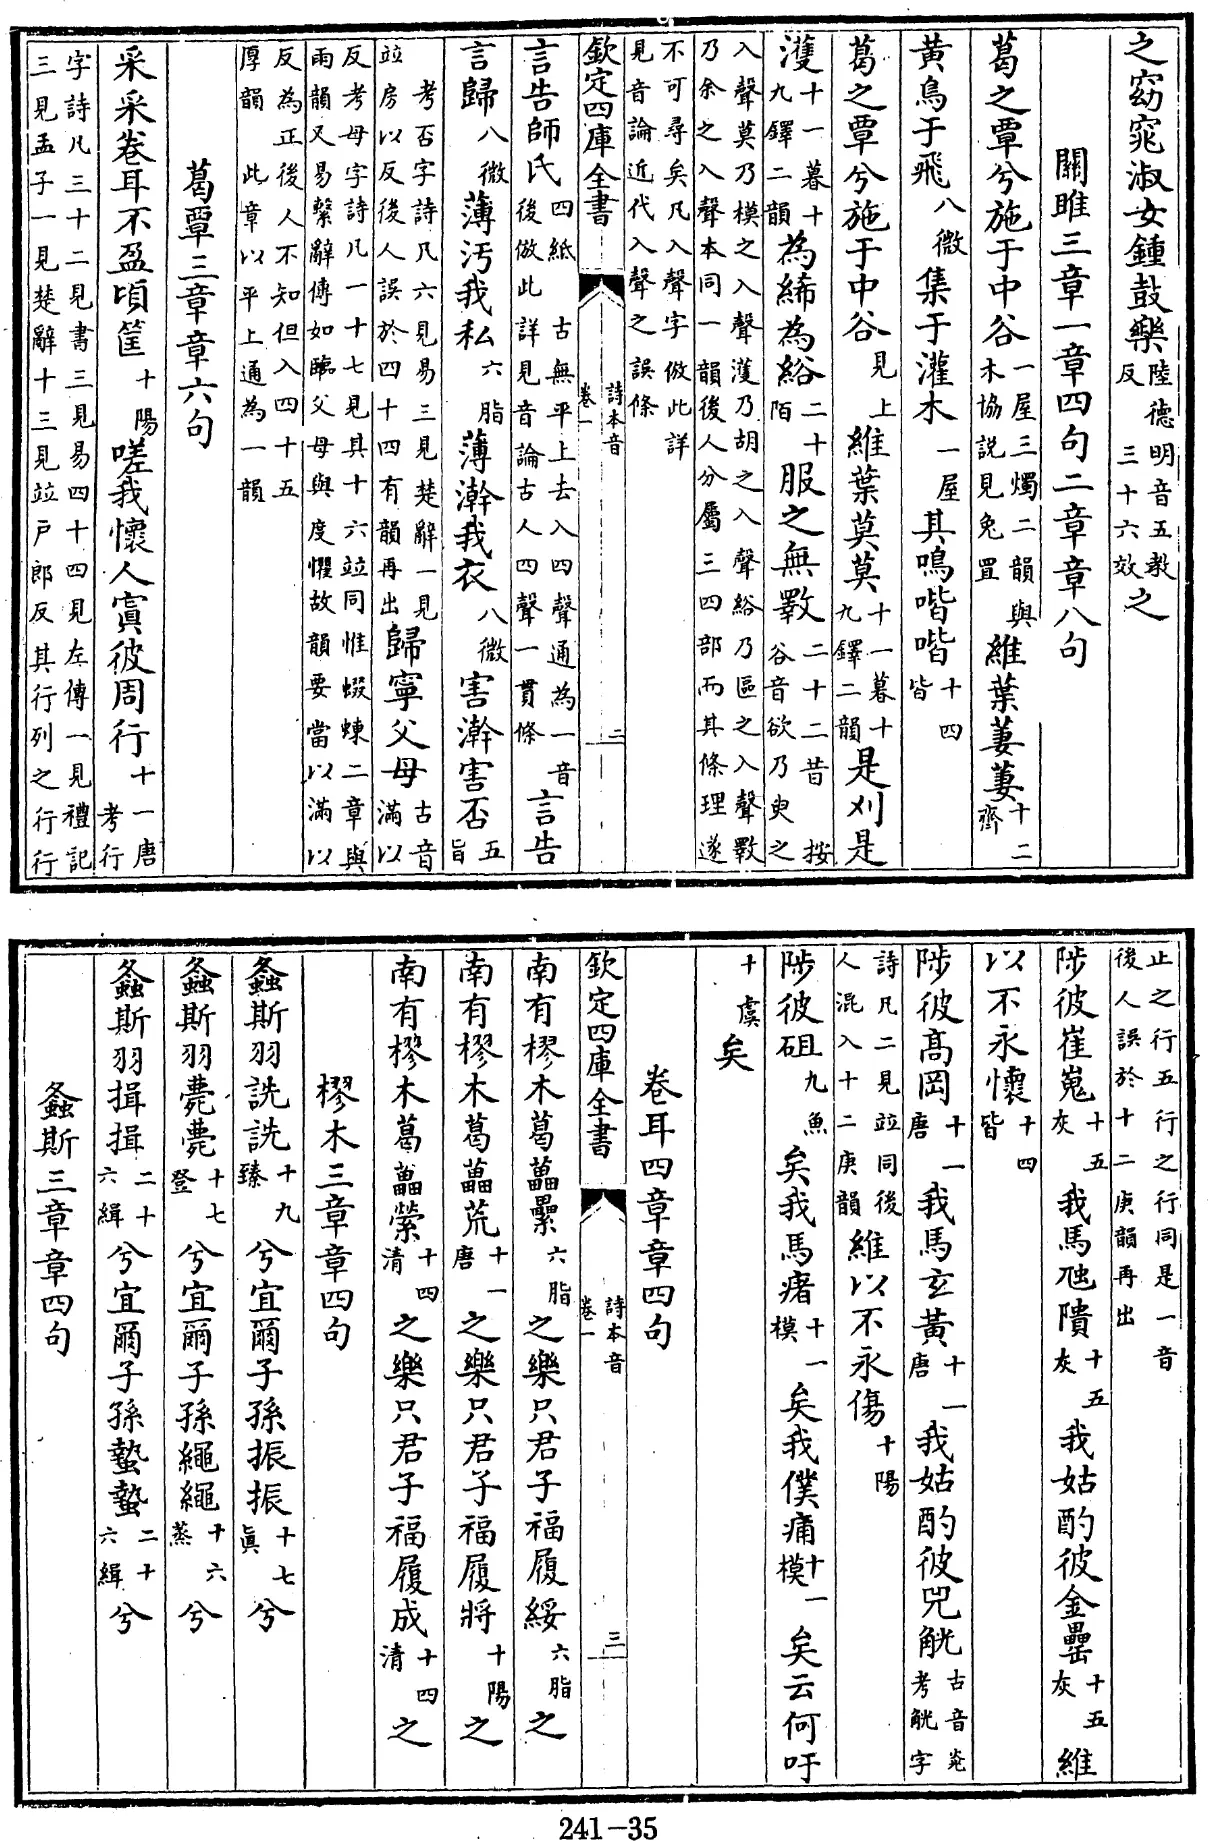 之窈窕淑女鍾鼓樂陸德明音五教反 三十六效之
關雎三章一章四句二章章八句
葛之覃兮施于中谷一屋三燭二韻與木協説見兔罝維葉萋萋十二齊
黃鳥于飛八微集于灌木一屋其鳴喈喈十四皆
葛之覃兮施于中谷見上維葉莫莫十一暮十九鐸二韻是刈是
濩十一暮十九鐸二韻為絺為綌二十陌服之無斁二十二昔 按谷音欲乃臾之
入聲莫乃模之入聲濩乃胡之入聲綌乃區之入聲斁
乃余之入聲本同一韻後人分屬三四部而其條理遂
不可尋矣凡入聲字倣此詳
見音論近代入聲之誤條
欽定四庫全書 詩本音 卷一 二
言告師氏四紙 古無平上去入四聲通為一音後倣此詳見音論古人四聲一貫條言告
言歸八微薄汚我私六脂薄澣我衣八微害澣害否五旨
考否字詩凡六見易三見楚辭一見竝房以反後人誤於四十四有韻再出歸寧父母古音滿以
反考母字詩凡一十七見其十六竝同惟蝃蝀二章與
雨韻又易繫辭傳如臨父母與度懼故韻要當以滿以
反為正後人不知但入四十五
厚韻 此章以平上通為一韻
葛覃三章章六句
采采卷耳不盈頃筐十陽嗟我懷人寘彼周行十一唐 考行
字詩凡三十二見書三見易四十四見左傳一見禮記
三見孟子一見楚辭十三見竝戶郎反其行列之行行
止之行五行之行同是一音
後人誤於十二庚韻再出
陟彼崔嵬十五灰我馬虺隤十五灰我姑酌彼金罍十五灰維
以不永懷十四皆
陟彼高岡十一唐我馬玄黃十一唐我姑酌彼兕觥古音光考觥字
詩凡二見竝同後人混入十二庚韻維以不永傷十陽
陟彼砠九魚矣我馬瘏十一模矣我僕痡十一模矣云何吁
十虞矣
卷耳四章章四句
欽定四庫全書 詩本音 卷一 三
南有樛木葛藟纍六脂之樂只君子福履綏六脂之
南有樛木葛藟荒十一唐之樂只君子福履將十陽之
南有樛木葛藟縈十四清之樂只君子福履成十四清之
樛木三章章四句
螽斯羽詵詵十九臻兮宜爾子孫振振十七眞兮
螽斯羽薨薨十七登兮宜爾子孫繩繩十六蒸兮
螽斯羽揖揖二十六緝兮宜爾子孫蟄蟄二十六緝兮
螽斯三章章四句
241-35